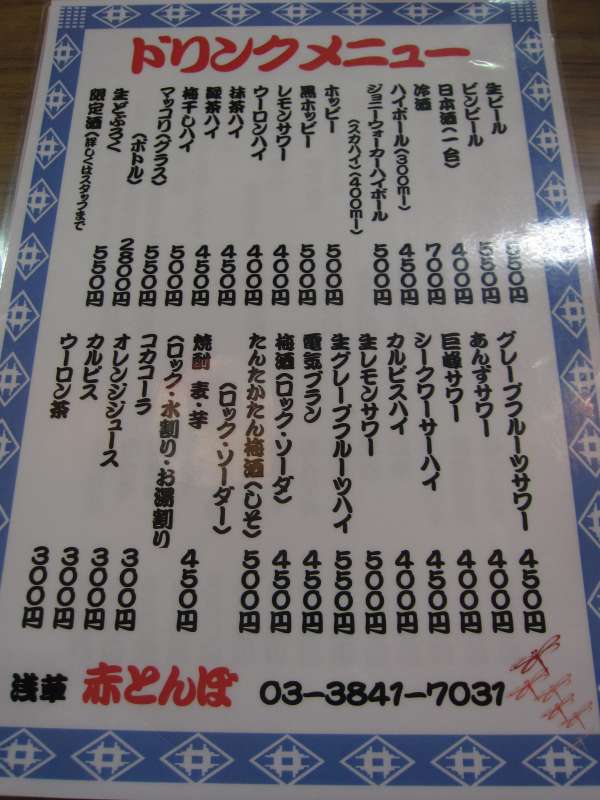 ドリンクメニュー
生ビール 550円
ビンビール 550円
日本酒(一合) 400円
冷酒 700円
ハイボール(300ml) 450円
ジョニーウォーカーハイボール
(スカハイ)(400ml) 500円
ホッピー 500円
黒ホッピー 500円
レモンサワー 400円
ウーロンハイ 400円
抹茶ハイ 450円
緑茶ハイ 450円
梅干しハイ 500円
マッコリ(グラス) 550円
(ボトル) 2800円
生どぶろく 550円
限定酒(詳しくはスタッフまで
グレープフルーツサワー 450円
あんずサワー 400円
巨峰サワー 400円
シークワーサーハイ 450円
カルピスハイ 400円
生レモンサワー 500円
生グレープフルーツハイ 550円
電気ブラン 450円
梅酒(ロック・ソーダ) 450円
たんたかたん梅酒(しそ) 500円
(ロック・ソーダー)
焼酎 麦・芋 450円
(ロック・水割り・お湯割り
コカコーラ 300円
オレンジジュース 300円
カルピス 300円
ウーロン茶 300円
浅草 赤とんぼ 03-3841-7031